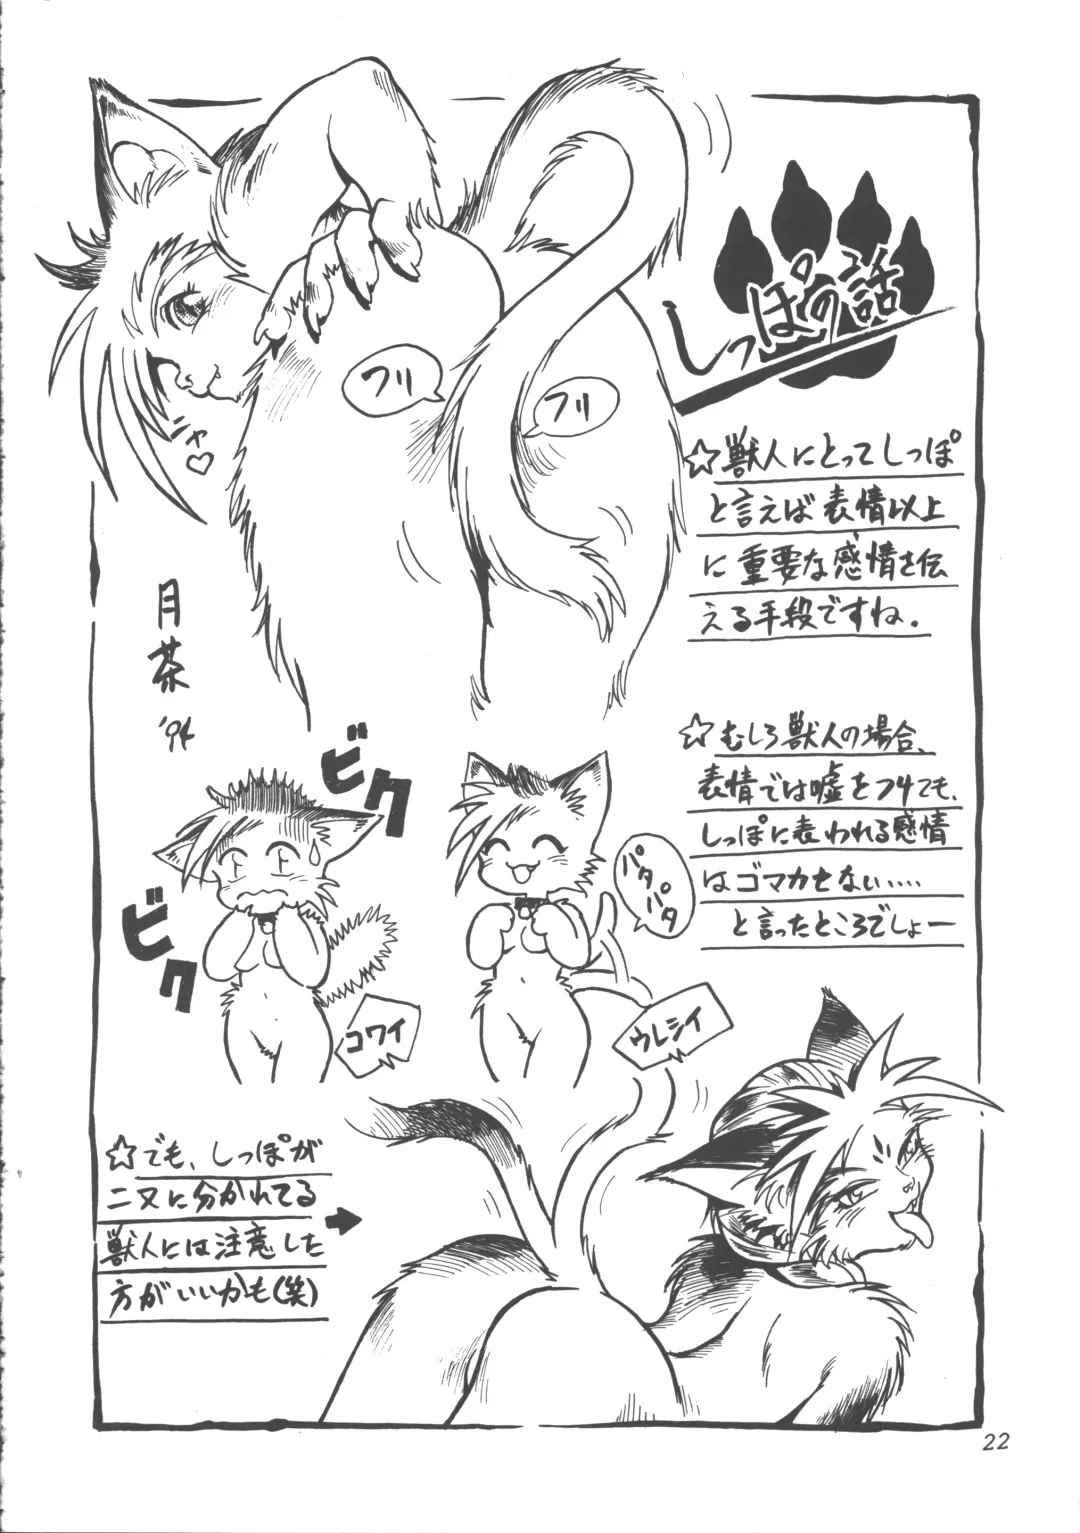 しっぽの話
ニャ♡
フリ
フリ
☆獣人にとってしっぽ
と言えば表情以上
に重要な感情を伝
える手段ですね。
月茶
'94
☆むしろ獣人の場合、
表情では嘘をつけても、
しっぽに表われる感情
はゴマカせない‥‥
と言ったところでしょー
ビク
ビク
コワイ
パタパタ
ウレシイ
☆でも、しっぽが
二又に分かれてる
獣人には注意した
方がいいかも(笑)
22